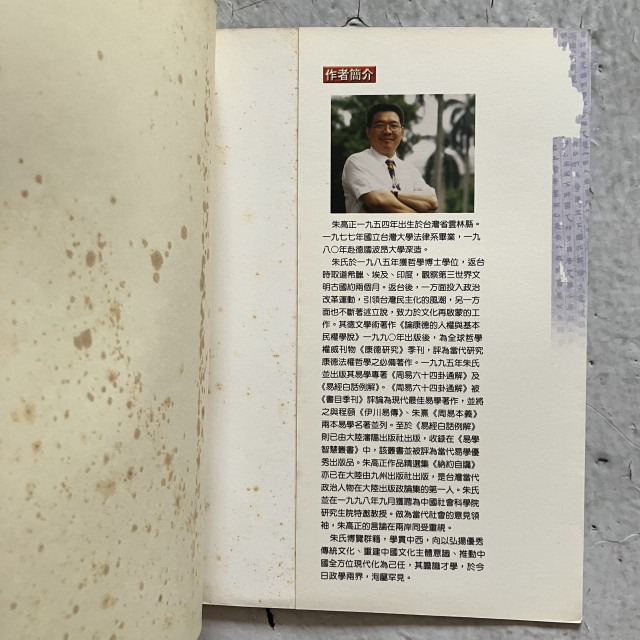 作者簡介
朱高正一九五四年出生於台灣省雲林縣。
一九七七年國立台灣大學法律系畢業，一九
八〇年赴德國波昂大學深造。
朱氏於一九八五年獲哲學博士學位，返台
時取道希臘、埃及、印度，觀察第三世界文
明古國約兩個月。返台後，一方面投入政治
改革運動，引領台灣民主化的風潮，另一方
面也不斷著述立說，致力於文化再啟蒙的工
作。其德文學術著作《論康德的人權與基本
民權學說》一九九〇年出版後，為全球哲學
權威刊物《康德研究》季刊，評為當代研究
康德法權哲學之必備著作。一九九五年朱氏
並出版其易學專著《周易六十四卦通解》及
《易經白話例解》。《周易六十四卦通解》被
《書目季刊》評論為現代最佳易學著作，並將
之與程頤《伊川易傳》、朱熹《周易本義》
兩本易學名著並列。至於《易經白話例解》
則已由大陸瀋陽出版社出版，收錄在《易學
智慧叢書》中，該叢書並被評為當代易學優
秀出版品。朱高正作品精選集《納約自牖》
亦已在大陸由九州出版社出版，是台灣當代
政治人物在大陸出版政論集的第一人。朱氏
並在一九九八年九月獲聘為中國社會科學院
研究生院特邀教授。做為當代社會的意見領
袖，朱高正的言論在兩岸同受重視。
朱氏博覽群籍，學貫中西，向以弘揚優秀
傳統文化、重建中國文化主體意識、推動中
國全方位現代化為己任，其膽識才學，於今
日政學兩界，洵屬罕見。